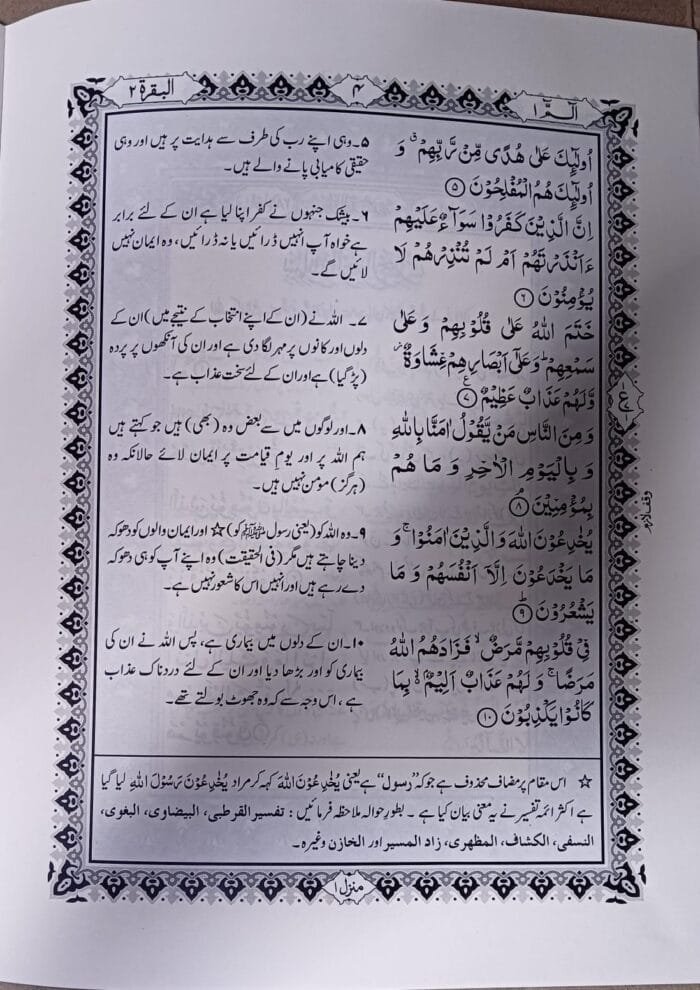 الٓمّٓ ١
۴
البقرة ٢
اُولٰٓئِكَ عَلٰى هُدًى مِّنْ رَّبِّهِمْ ۗ وَ
اُولٰٓئِكَ هُمُ الْمُفْلِحُوْنَ ۝۵
اِنَّ الَّذِيْنَ كَفَرُوْا سَوَآءٌ عَلَيْهِمْ
ءَاَنْذَرْتَهُمْ اَمْ لَمْ تُنْذِرْهُمْ لَا
يُؤْمِنُوْنَ ۝۶
خَتَمَ اللّٰهُ عَلٰى قُلُوْبِهِمْ وَ عَلٰى
سَمْعِهِمْ ؕ وَ عَلٰٓى اَبْصَارِهِمْ غِشَاوَةٌ ؗ
وَّ لَهُمْ عَذَابٌ عَظِيْمٌ ۝۷ ع
وَ مِنَ النَّاسِ مَنْ يَّقُوْلُ اٰمَنَّا بِاللّٰهِ
وَ بِالْيَوْمِ الْاٰخِرِ وَ مَا هُمْ
بِمُؤْمِنِيْنَ ۝۸
يُخٰدِعُوْنَ اللّٰهَ وَ الَّذِيْنَ اٰمَنُوْا ۚ وَ
مَا يَخْدَعُوْنَ اِلَّاۤ اَنْفُسَهُمْ وَ مَا
يَشْعُرُوْنَ ۝۹ؕ
فِيْ قُلُوْبِهِمْ مَّرَضٌ ۙ فَزَادَهُمُ اللّٰهُ
مَرَضًا ۚ وَ لَهُمْ عَذَابٌ اَلِيْمٌۢ ۙ۬ بِمَا
كَانُوْا يَكْذِبُوْنَ ۝۱۰
۵۔ وہی اپنے رب کی طرف سے ہدایت پر ہیں اور وہی
حقیقی کامیابی پانے والے ہیں۔
۶۔ بیشک جنہوں نے کفر اپنا لیا ہے ان کے لئے برابر
ہے خواہ آپ انہیں ڈرائیں یا نہ ڈرائیں، وہ ایمان نہیں
لائیں گے۔
۷۔ اللہ نے (ان کے اپنے انتخاب کے نتیجے میں) ان کے
دلوں اور کانوں پر مہر لگا دی ہے اور ان کی آنکھوں پر پردہ
(پڑ گیا) ہے اور ان کے لئے سخت عذاب ہے۔
۸۔ اور لوگوں میں سے بعض وہ (بھی) ہیں جو کہتے ہیں
ہم اللہ پر اور یومِ قیامت پر ایمان لائے حالانکہ وہ
(ہرگز) مومن نہیں ہیں۔
۹۔ وہ اللہ کو (یعنی رسول ﷺ کو) ☆ اور ایمان والوں کو دھوکہ
دینا چاہتے ہیں مگر (فی الحقیقت) وہ اپنے آپ کو ہی دھوکہ
دے رہے ہیں اور انہیں اس کا شعور نہیں ہے۔
۱۰۔ ان کے دلوں میں بیماری ہے، پس اللہ نے ان کی
بیماری کو اور بڑھا دیا اور ان کے لئے دردناک عذاب
ہے، اس وجہ سے کہ وہ جھوٹ بولتے تھے۔
وقف لازم
☆ اس مقام پر مضاف محذوف ہے جو کہ ”رسول“ ہے یعنی يُخٰدِعُوْنَ اللّٰهَ کہہ کر مراد يُخٰدِعُوْنَ رَسُوْلَ اللّٰهِ لیا گیا
ہے اکثر ائمہ تفسیر نے یہ معنی بیان کیا ہے۔ بطورِ حوالہ ملاحظہ فرمائیں: تفسیر القرطبی، البیضاوی، البغوی،
النسفی، الکشاف، المظهری، زاد المسیر اور الخازن وغیرہ۔
منزل ۱